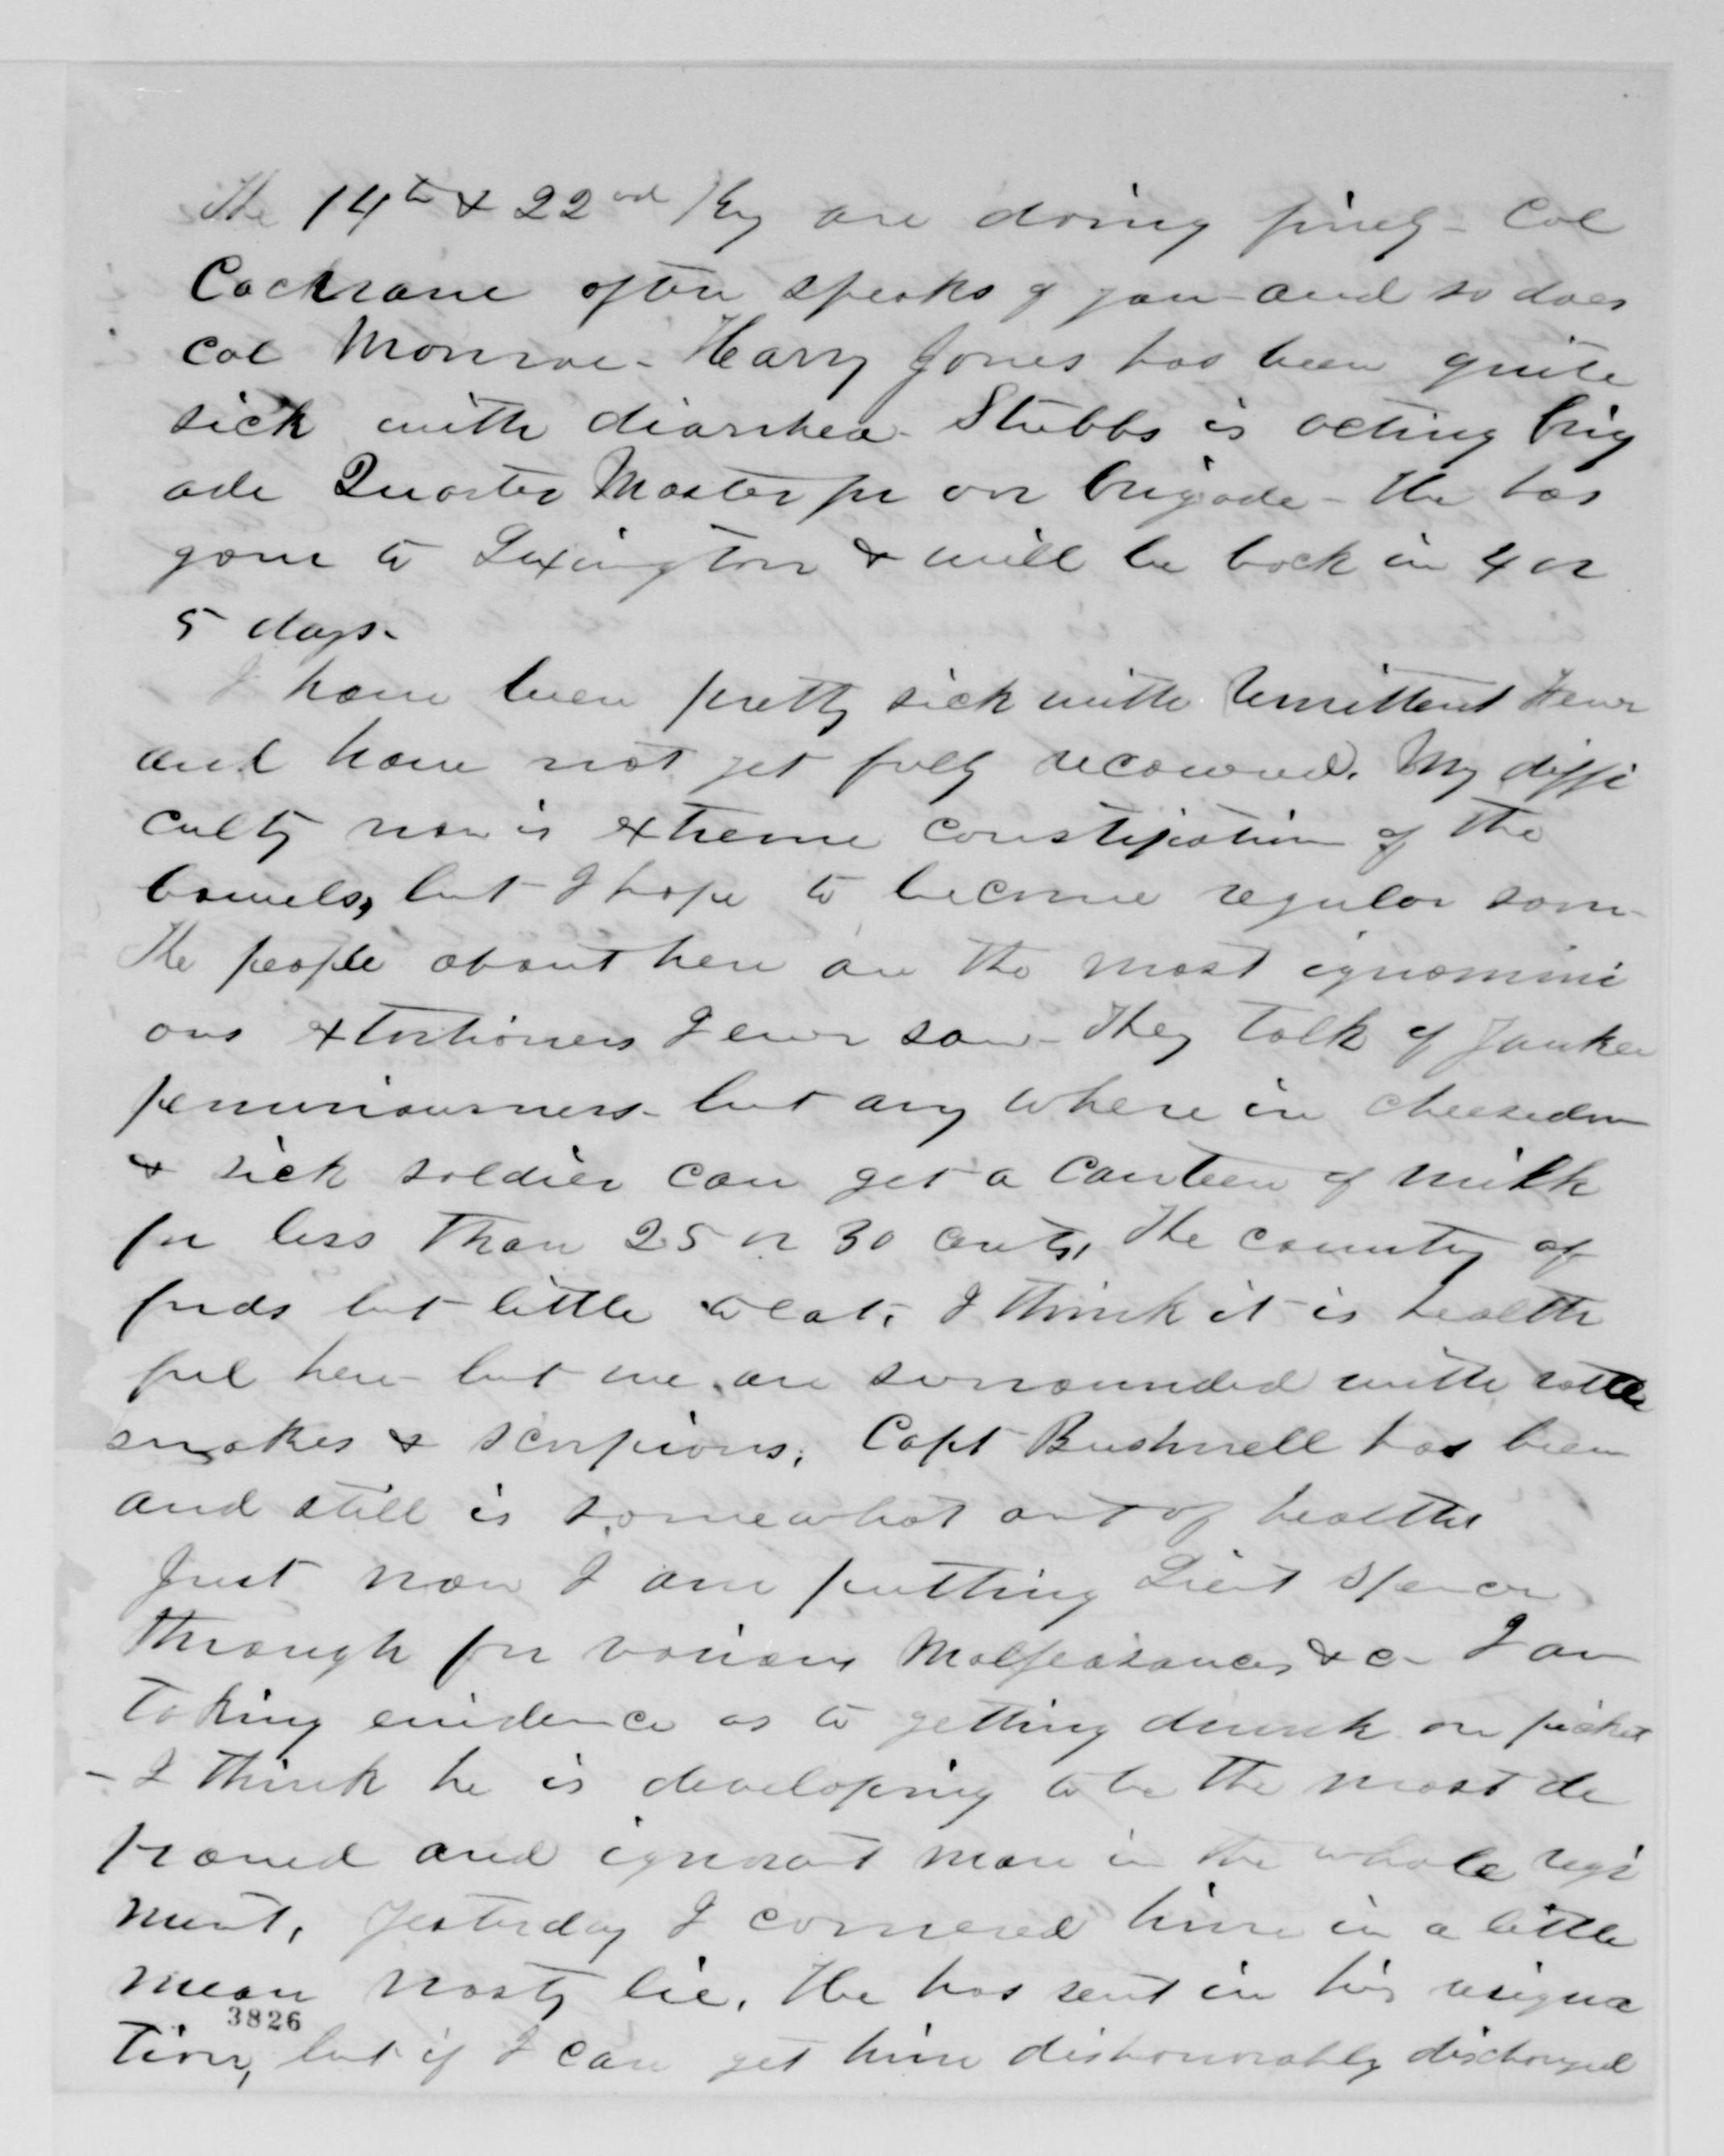 The 14th & 22nd Ky are doing finely - Col
Cochrane often speaks of you and so does
Col Monroe - Harry Jones has been quite
sick with diarrhea - Stubbs is acting brig
ade Quarter Master for our brigade - He has
gone to Lexington & will be back in 4 or
5 days -
I have been pretty sick with Remittent Fever
and have not yet fully recovered. My diffi
culty now is extreme constipation of the
bowels, but I hope to become regular soon -
The people about here are the most ignomini
ous extortioners I ever saw - They talk of Yankee
penuriousness - but any where in cheesedom
a sick soldier can get a canteen of milk
for less than 25 or 30 cents, The country af
fords but little to eat. I think it is health
ful here but we are surrounded with rattle
snakes & scorpions. Capt Bushnell has been
and still is somewhat out of health
Just now I am putting Lieut Spencer
through for various Malfeasances &c - I am
taking evidence as to getting drunk on picket
- I think he is developing to be the most de
praved and ignorant man in the whole regi
ment, Yesterday I cornered him in a little
mean nasty lie. He has sent in his resigna
3826
tion, but if I can get him dishonorably discharged